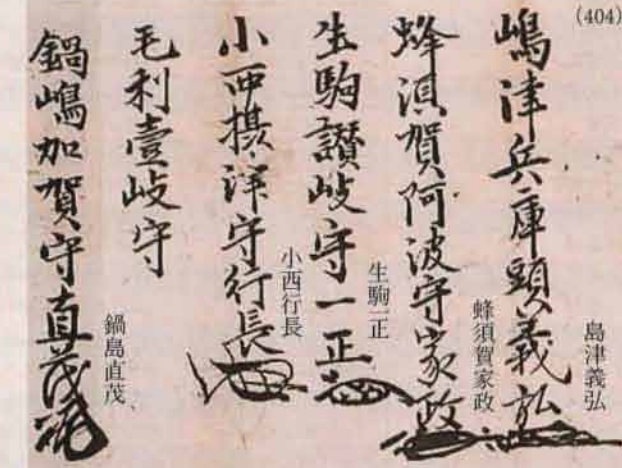 (404)
嶋津兵庫頭義弘
島津義弘
蜂須賀阿波守家政
蜂須賀家政
生駒讃岐守一正
生駒一正
小西摂津守行長
小西行長
毛利壹岐守
鍋嶋加賀守直茂
鍋島直茂